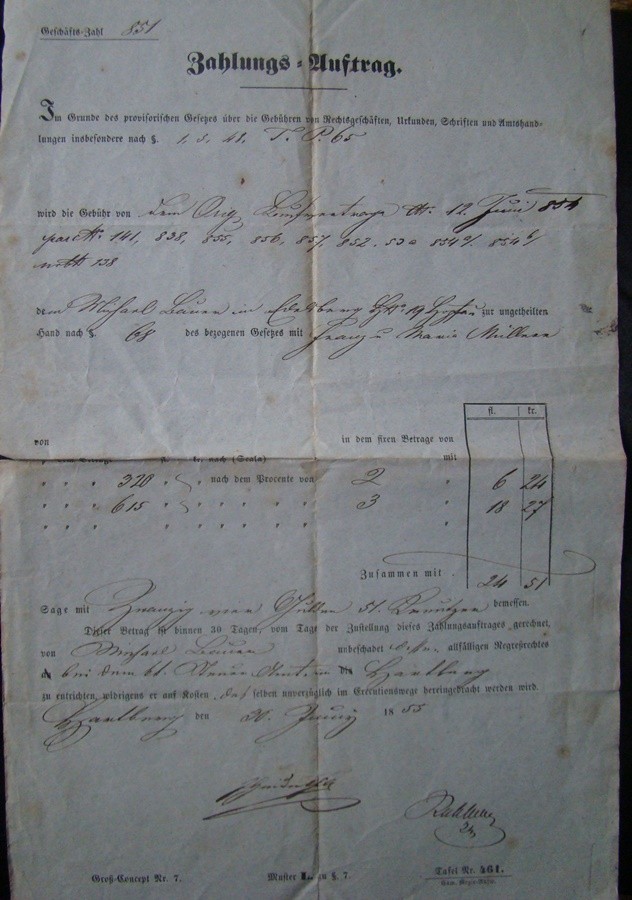 Geschäfts-Zahl 851
Zahlungs-Auftrag.
Im Grunde des provisorischen Gesetzes über die Gebühren von Rechtsgeschäften, Urkunden, Schriften und Amtshand-
lungen insbesondere nach §. 1. 3. 48. T. P. 65
wird die Gebühr von dem Orig. Kaufvertrage 12. Juni 854
141, 838, 855, 856, 857, 852. 854 a/ 854 b/
138
dem Michael Bauer in No 19 zur ungetheilten
Hand nach §. 68 des bezogenen Gesetzes mit Franz u Maria Müllner
fl. kr.
von in dem fixen Betrage von
fl. kr. nach (Scala) mit
" " " 320 " nach dem Procente von 2 " 6 24
" " " 615 " " " " " " " 3 " 18 27
" " " " " " " " " "
Zusammen mit . 24 51
Sage mit Zwanzig vier Gulden 51. Kreutzer bemessen.
Dieser Betrag ist binnen 30 Tagen, vom Tage der Zustellung dieses Zahlungsauftrages gerechnet,
von Michael Bauer unbeschadet allfälligen Regreßrechtes
bei dem Steuer Amte in Hartberg
zu entrichten, widrigens er auf Kosten desselben unverzüglich im Executionswege hereingebracht werden wird.
Hartberg den 30. Juny 1855
Groß-Concept Nr. 7.
Muster I. zu §. 7.
Tafel Nr. 461.